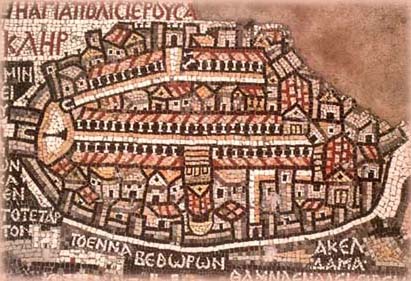 ΗΑΓΙΑΠΟΛΙCΙΕΡΟΥCΑ
ΚΛΗΡ
ΜΙΝ
ΩΝ
ΕΝ
ΤΟΤΕΤΑΡ
ΤΟΝ
ΤΟΕΝΝΑ
ΒΕΘΩΡΩΝ
ΑΚΕΛ
ΔΑΜΑ